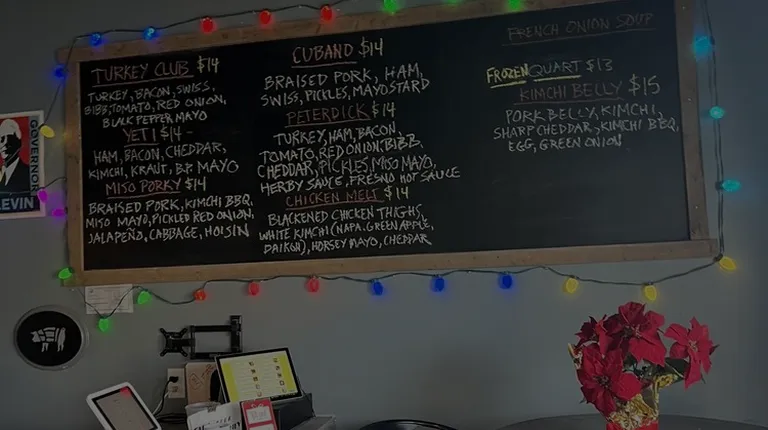 TURKEY CLUB $14
TURKEY, BACON, SWISS,
BIBB, TOMATO, RED ONION,
BLACK PEPPER MAYO
YETI $14
HAM, BACON, CHEDDAR,
KIMCHI, KRAUT, B.P. MAYO
MISO PORKY $14
BRAISED PORK, KIMCHI BBQ,
MISO MAYO, PICKLED RED ONION,
JALAPEÑO, CABBAGE, HOISIN
CUBANO $14
BRAISED PORK, HAM,
SWISS, PICKLES, MAYOSTARD
PETERDICK $14
TURKEY, HAM, BACON,
TOMATO, RED ONION, BIBB,
CHEDDAR, PICKLES, MISO MAYO,
HERBY SAUCE, FRESNO HOT SAUCE
CHICKEN MELT $14
BLACKENED CHICKEN THIGHS,
WHITE KIMCHI (NAPA, GREEN APPLE,
DAIKON), HORSEY MAYO, CHEDDAR
FRENCH ONION SOUP
FROZEN QUART $13
KIMCHI BELLY $15
PORK BELLY, KIMCHI,
SHARP CHEDDAR, KIMCHI BBQ,
EGG, GREEN ONION
GOVERNOR
LEVIN